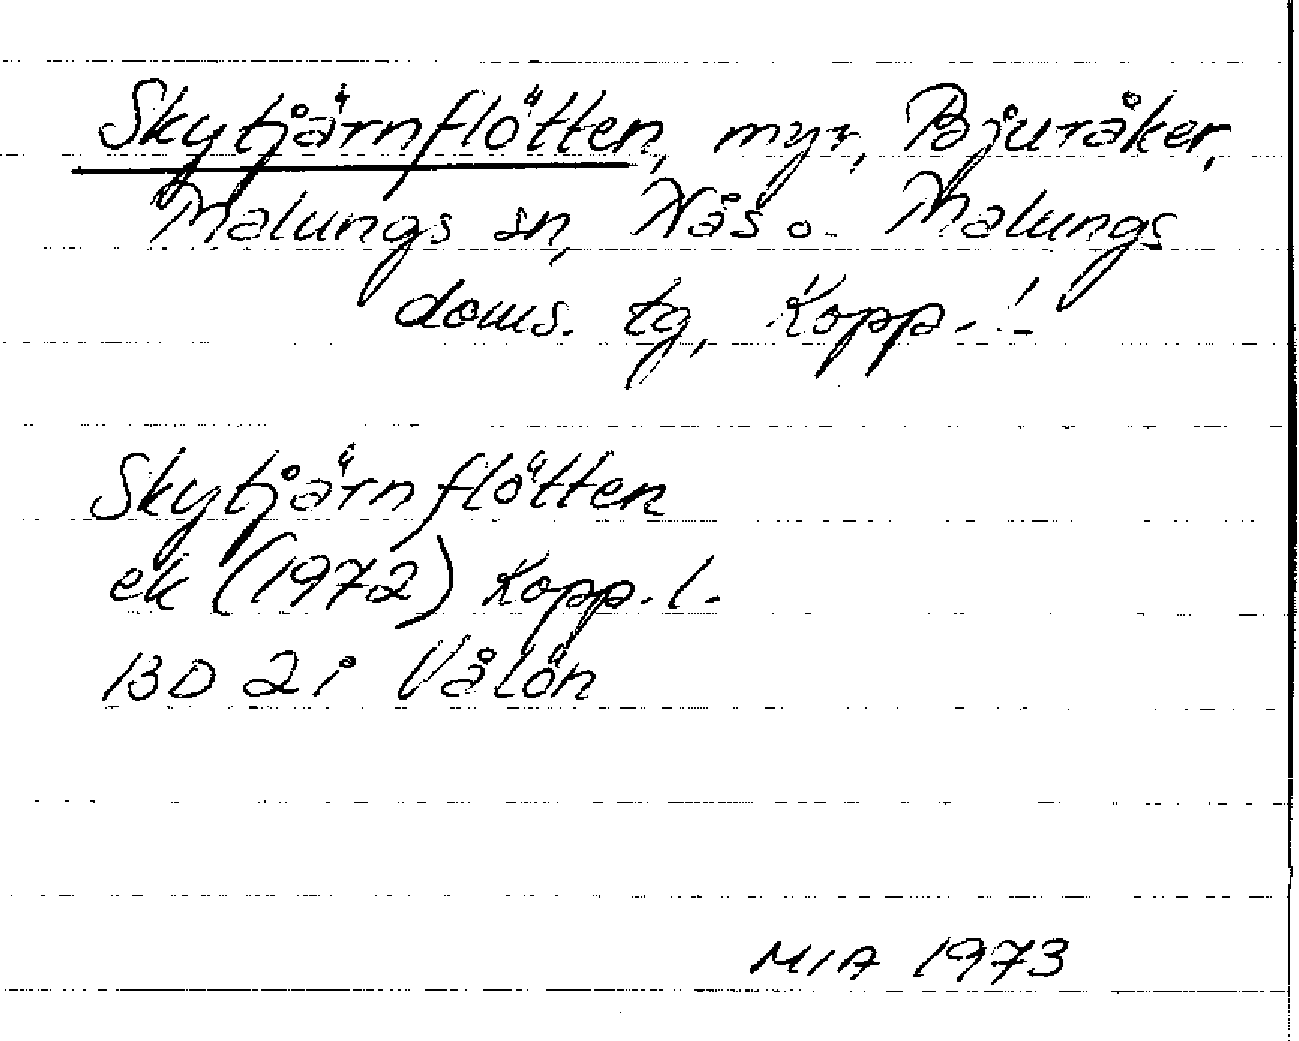 Skytjärnflötten, myr, Bjuråker,
Malungs sn, Nås o. Malungs
doms. tg, Kopp. l.
Skytjärnflötten
ek (1972) Kopp. l.
13D 2i Vålön
MIA 1973